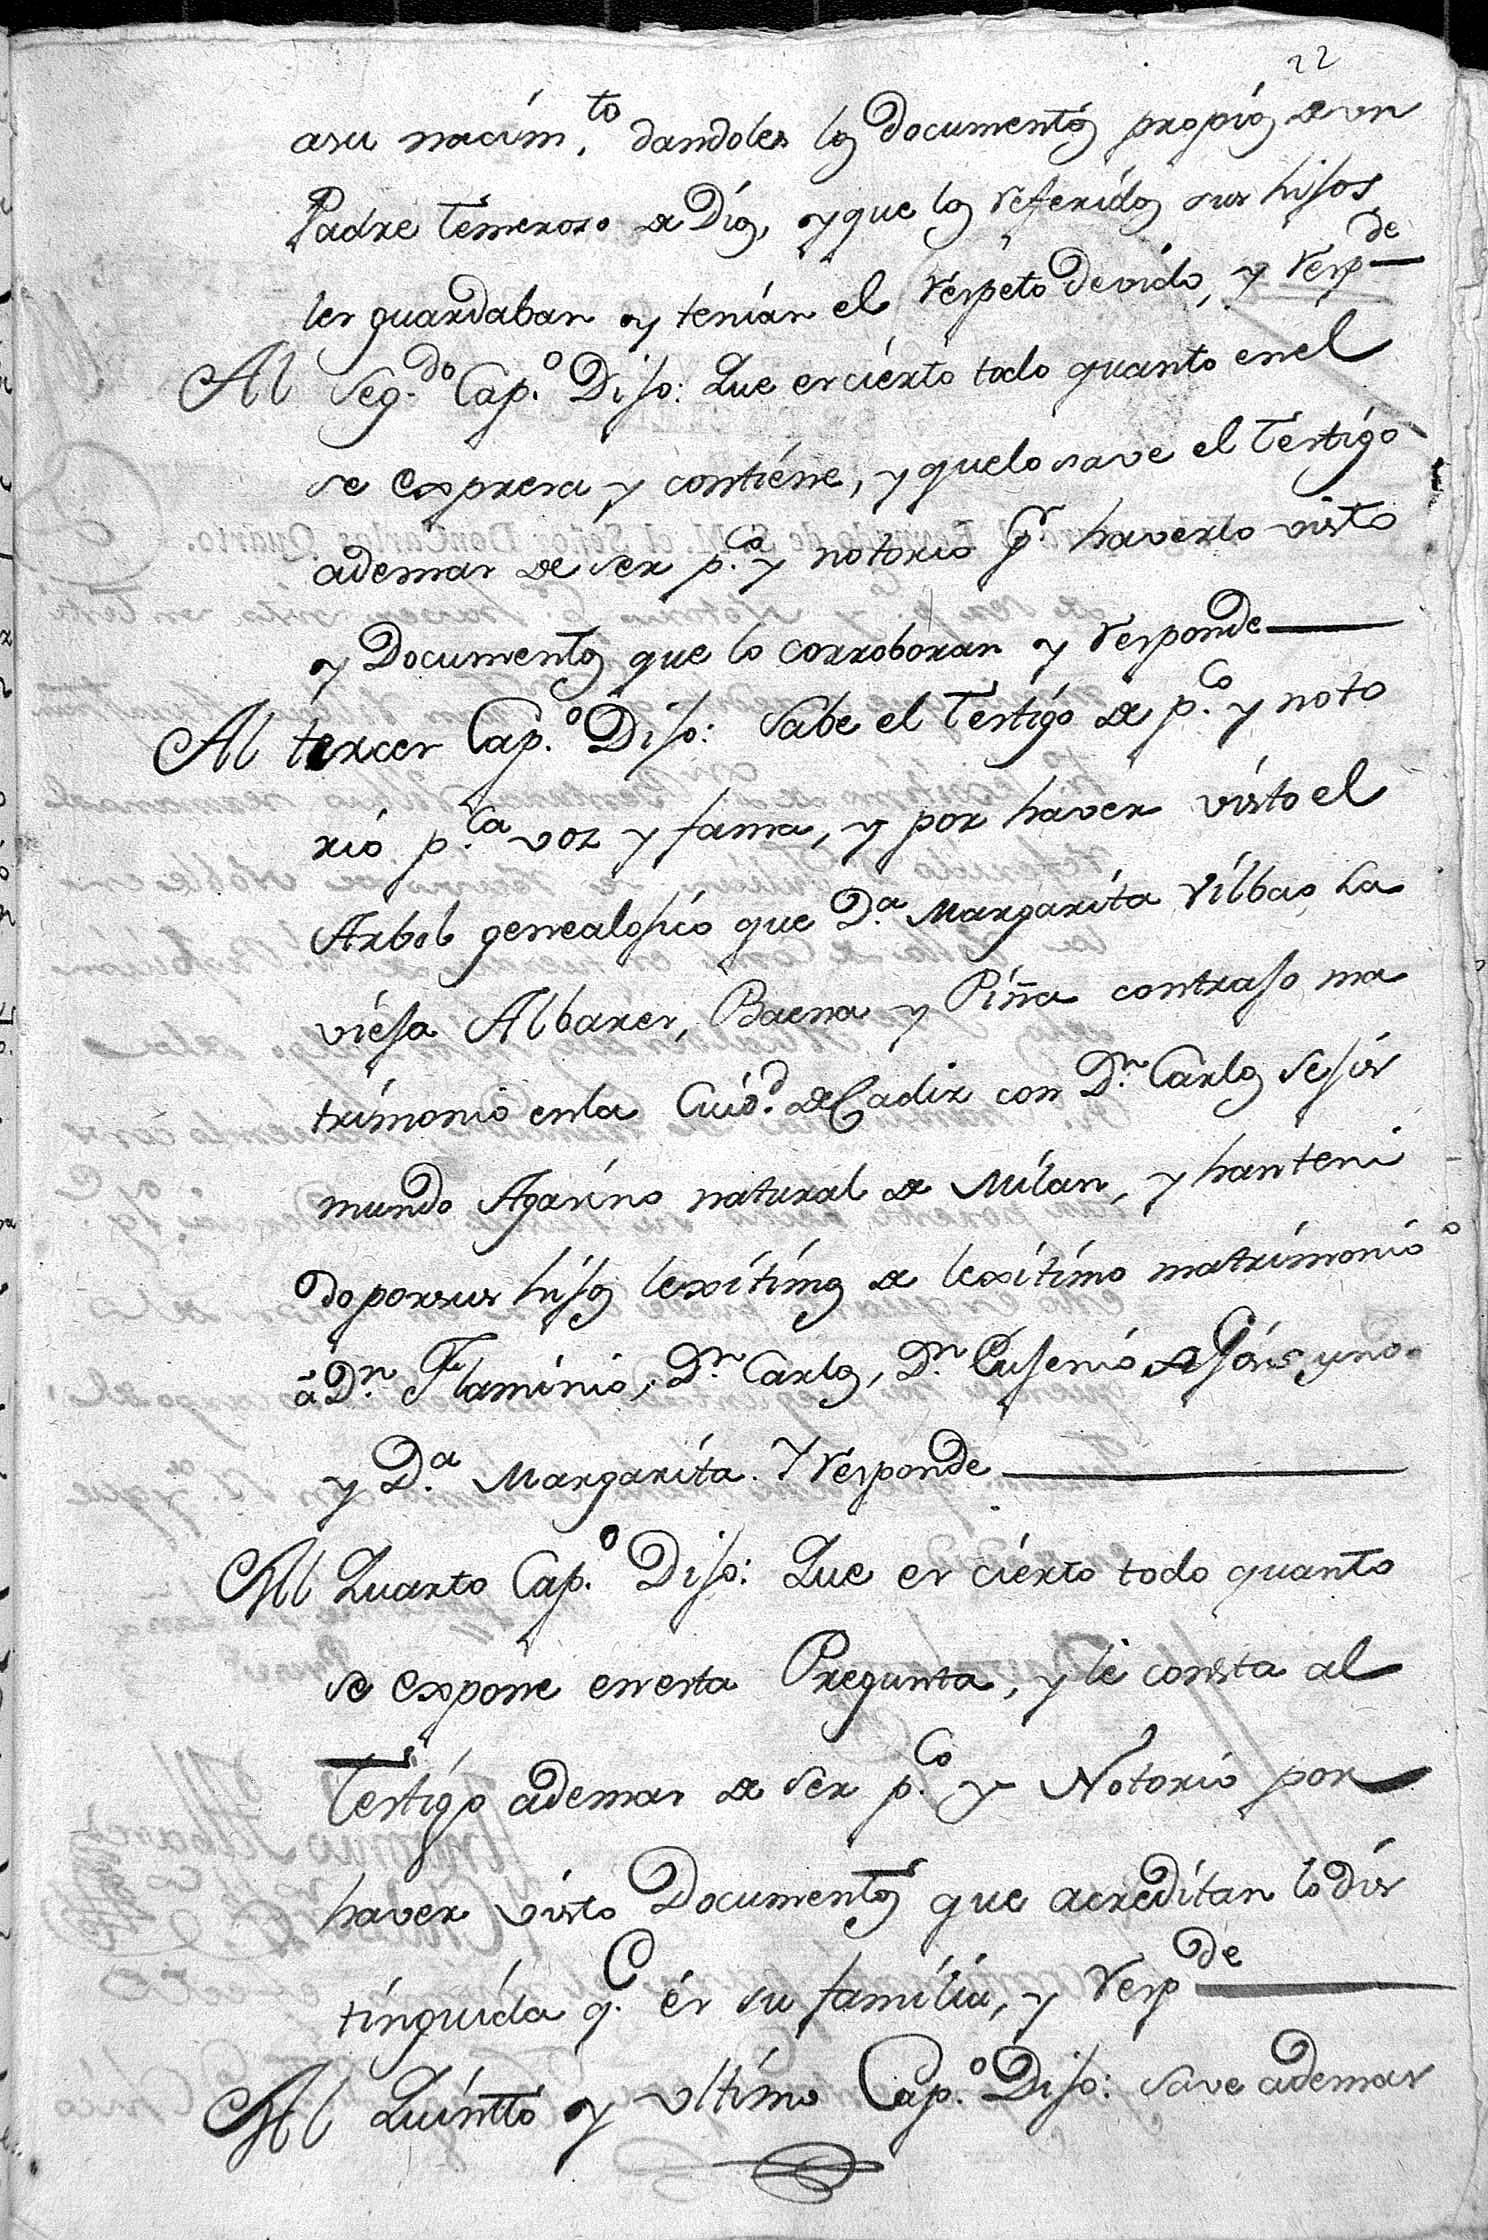 22
asu nacim.to dandoles los documentos propios de un
Padre temeroso de Dios, y que los referidos sus hijos
les guardaban y tenian el respeto devido, y resp.de
Al Seg.do Cap.o Dijo: Que es cierto todo quanto en el
se expresa y contiene, y que lo save el testigo
ademas de ser p.co y notorio p.r haverlo visto
y Documentos que lo corroboran y responde
Al tercer Cap.o Dijo: Sabe el testigo de p.co y noto
rio p.ca voz y fama, y por haver visto el
Arbol genealojico que D.a Margarita Vilbao La
viesa Albares, Baena y Piña contrajo ma
trimonio en la Ciud.d de Cadiz con D.n Carlos Sejis
mundo Agarino natural de Milan, y han teni
do por sus hijos lexitimos de lexitimo matrimonio
á D.n Flaminio, D.n Carlos, D.n Eusenio
y D.a Margarita. Y responde
Al Quarto Cap.o Dijo: Que es cierto todo quanto
se expone en esta Pregunta, y le consta al
testigo ademas de ser p.co y Notorio por
haver visto Documentos que acreditan lo dis
tinguida q.e es su familia, y resp.de
Al Quinto y ultimo Cap.o Dijo: save ademas